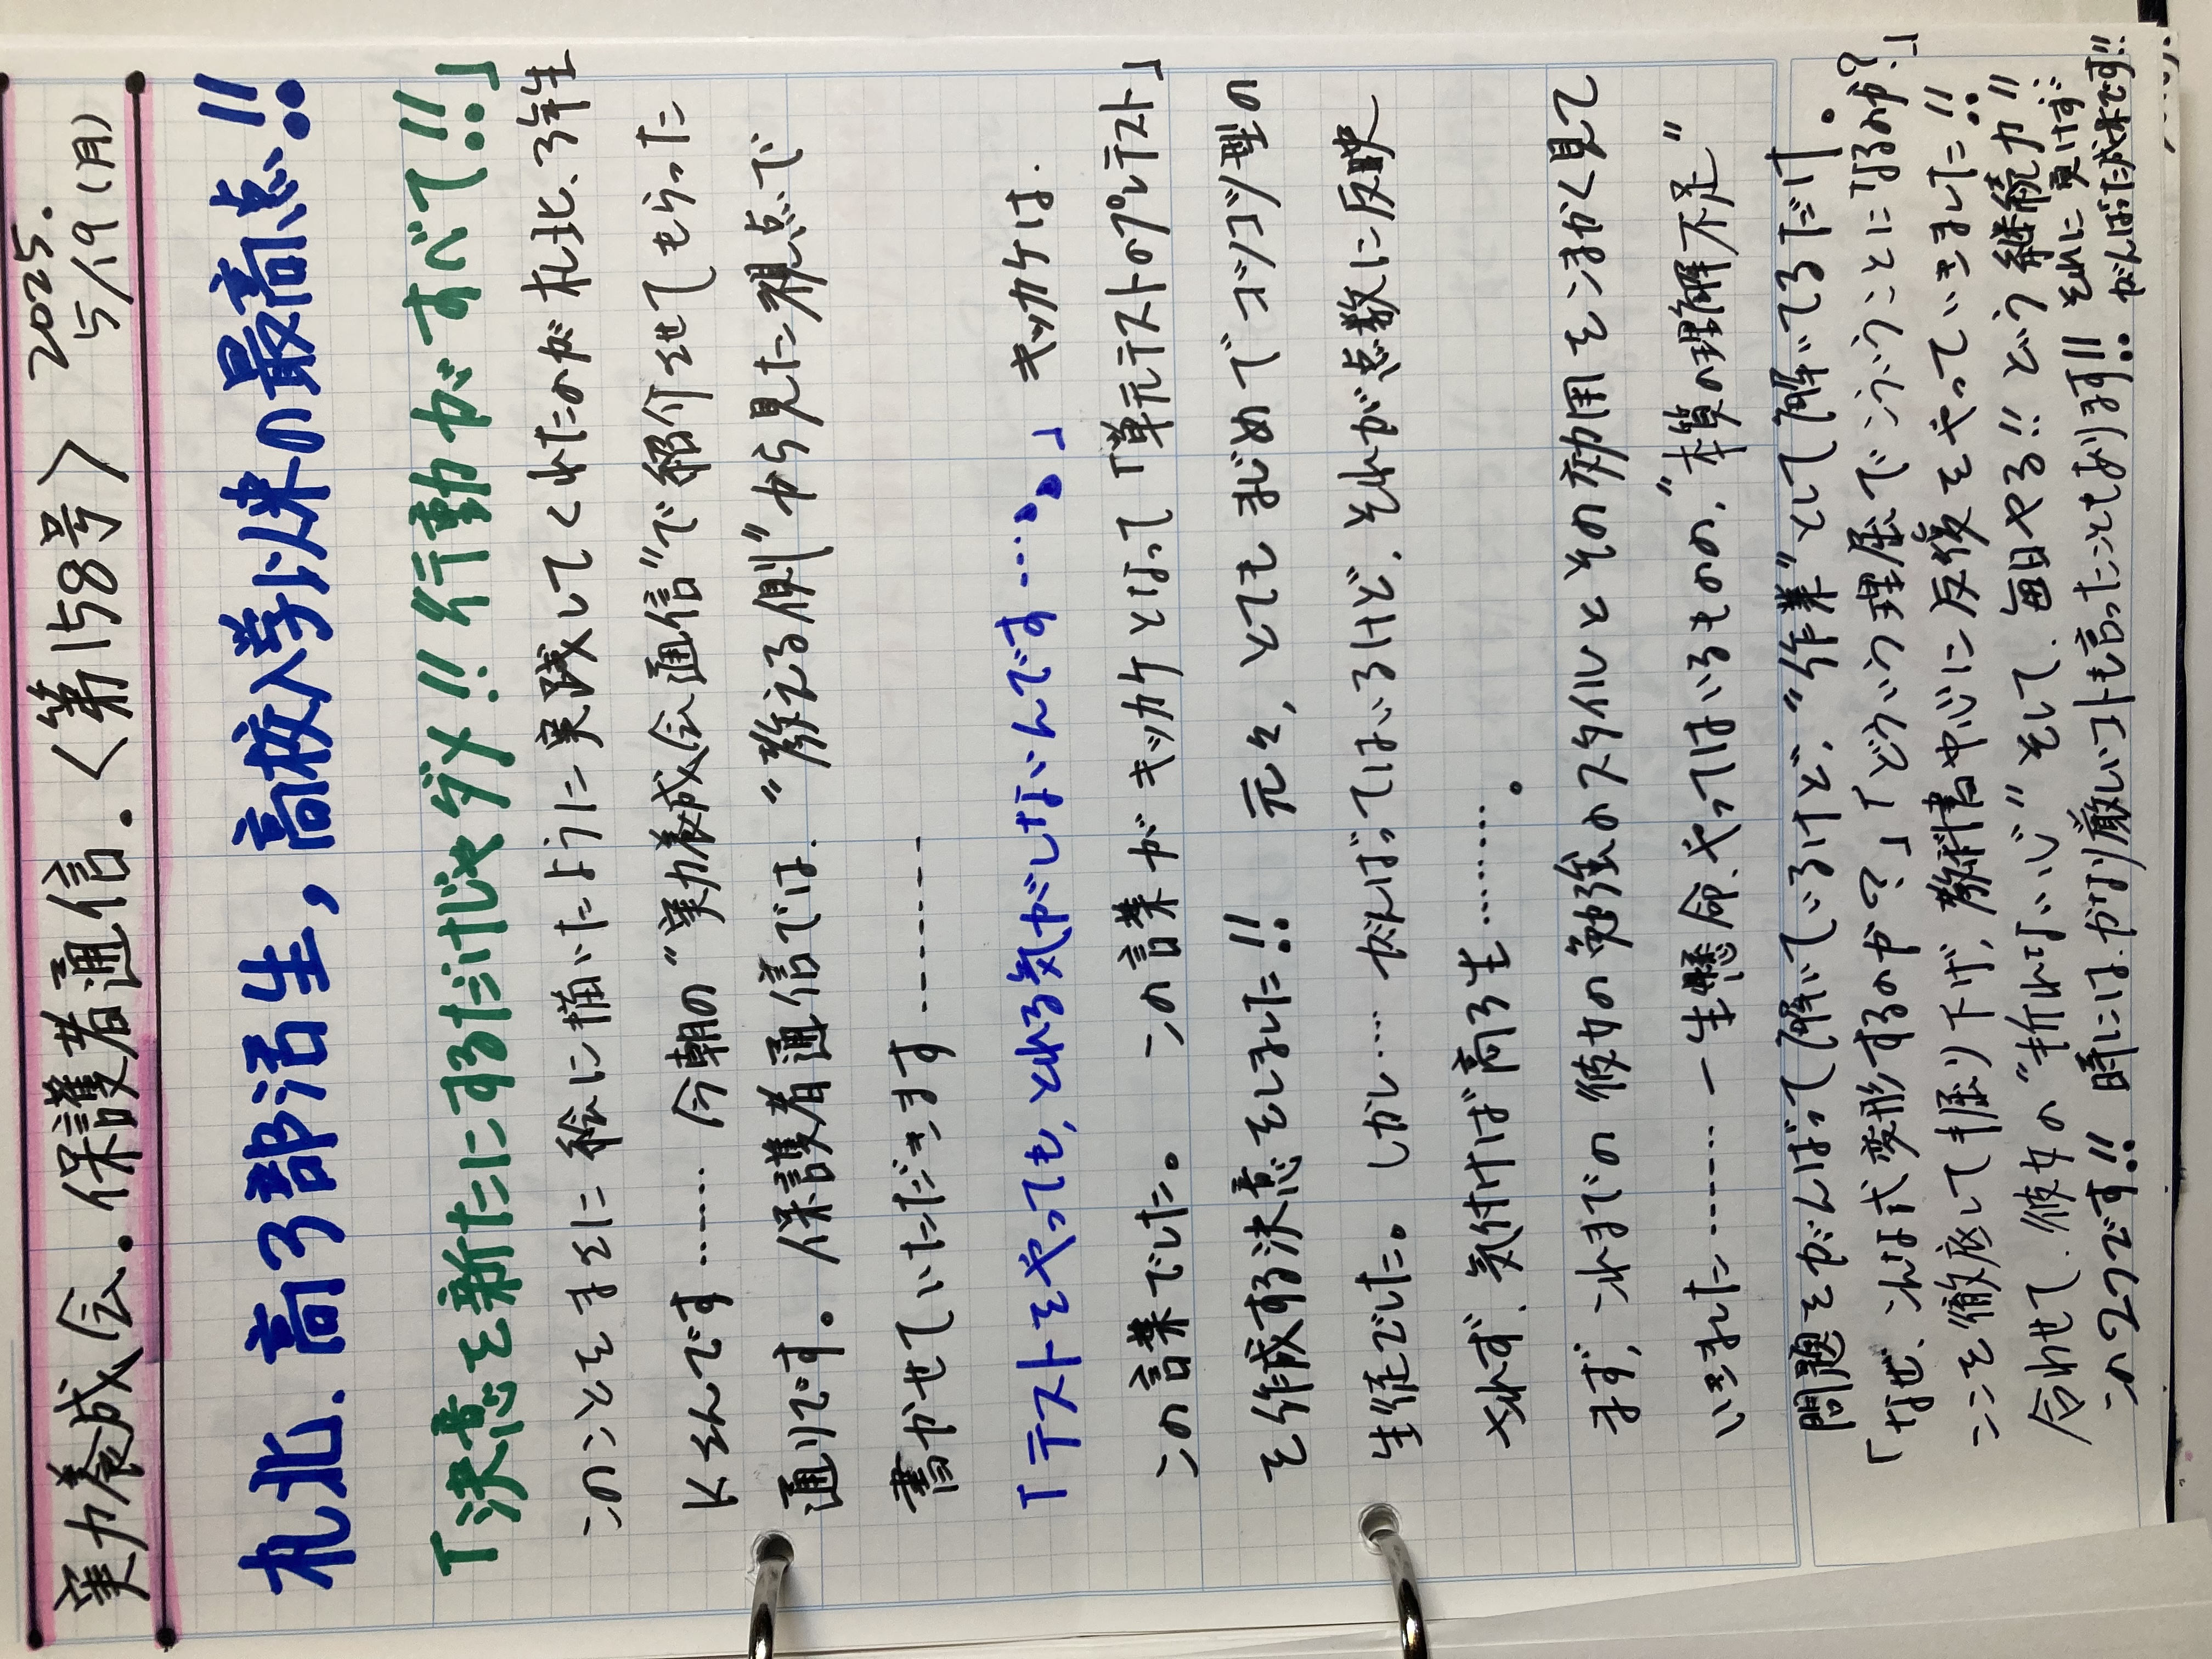 実力養成会.保護者通信.〈第158号〉 2025. 5/19(月)
札北.高3部活生,高校入学以来の最高点!!
「決意を新たにするだけじゃダメ!!行動がすべて!!」
このことをまさに絵に描いたように実践してくれたのが札北、3年生
Kさんです……… 今朝の〝実力養成会通信〟で紹介させてもらった
通りです。保護者通信では.〝教える側〟から見た視点で
書かせていただきます………
「テストをやっても,とれる気がしないんです…。」 キッカケは.
この言葉でした。 この言葉がキッカケとなって「単元テストのプレテスト」
を作成する決意をしました!! 元々,とてもまじめでコツコツ型の
生徒でした。しかし… がんばってはいるけど、それが点数に反映
されず、気付けば高3生………。
まず,これまでの彼女の勉強のスタイルとその効用を細かく見て
いきました……… 一生懸命、やってはいるものの、〝本質の理解不足〟
問題をがんばって解いているけど、〝作業〟として解いてるだけ。
「なぜ、こんな式変形するのか?」「どういう理屈でこういうことになるのか?」
ここを徹底して掘り下げ,教科書中心に反復をやっていきました!!
合わせて、彼女の〝折れない心〟そして、毎日やる!!という継続力!!
この2つです!! 時には、かなり厳しいコトも言ったこともあります!! それに負けず
がんばった成果です!!